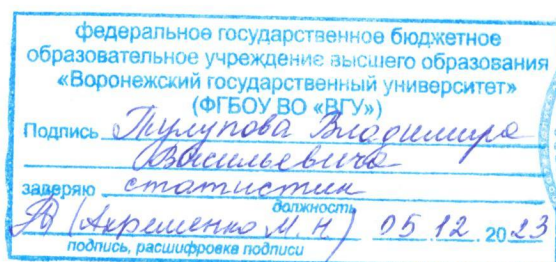 федеральное государственное бюджетное
образовательное учреждение высшего образования
«Воронежский государственный университет»
(ФГБОУ ВО «ВГУ»)
Подпись Тулупова Владимира
Васильевича
заверяю статистик
должность
(Ахременко М. Н) 05.12.2023
подпись, расшифровка подписи